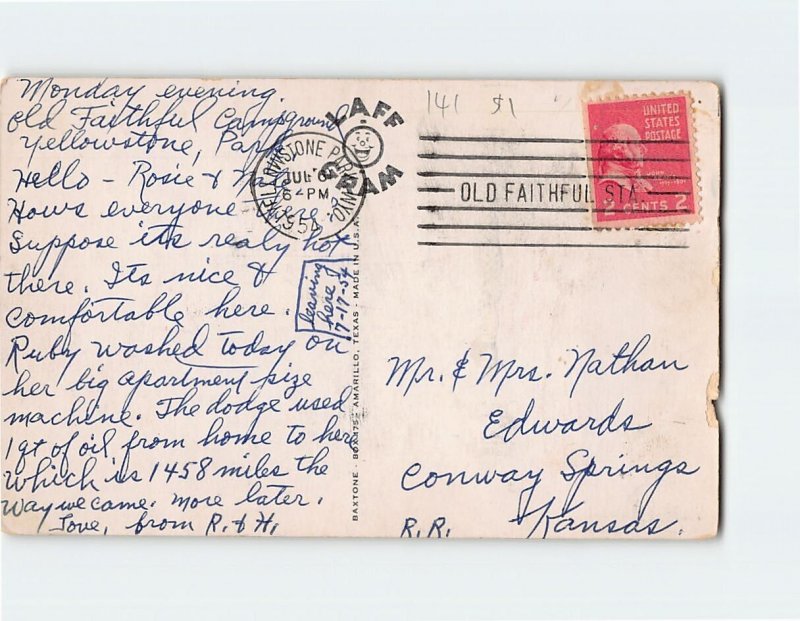 Monday evening.
Old Faithful Campground
Yellowstone, Park
Hello - Rosie &
Hows everyone there?
Suppose its realy hot
there. Its nice &
comfortable here.
Ruby washed today on
her big apartment size
machine. The dodge used
1 qt of oil from home to here
which is 1458 miles the
way we came. More later.
Love, from R. & H.
leaving
here
7-17-54
LAFF
GRAM
YELLOWSTONE PARK WYO.
JUL
6 PM
1954
BAXTONE - BOX 1757 AMARILLO, TEXAS - MADE IN U.S.A.
141 $1
OLD FAITHFUL STA.
UNITED
STATES
POSTAGE
2 CENTS 2
Mr. & Mrs. Nathan
Edwards
Conway Springs
R.R. Kansas.